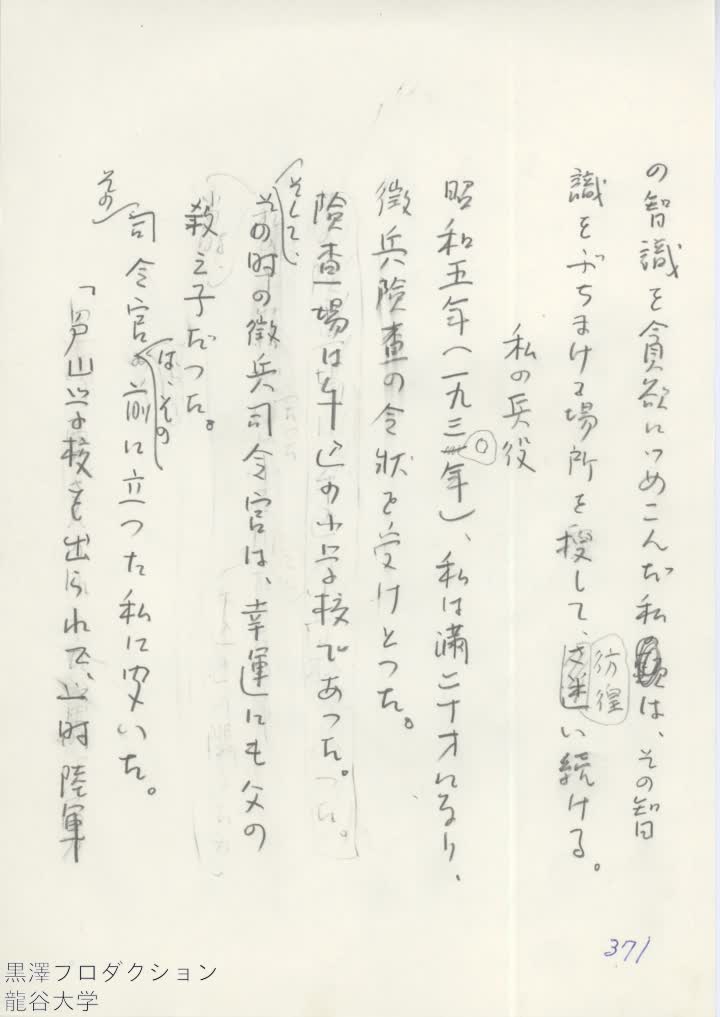 の智識を貪欲につめこんだ私は、その智
識をぶちまける場所を捜して、彷徨い続ける。
私の兵役
昭和五年(一九三〇年)、私は満二十才になり、
徴兵険査の令状を受けとった。
険査場は牛込の小学校であった。
そして、
その時の徴兵司令官は、幸運にも父の
教え子だった。
その
司令官の前に立った私に聞いた。
は、その
「戸山学校を出られて、一時陸軍
371
黒澤プロダクション
龍谷大学